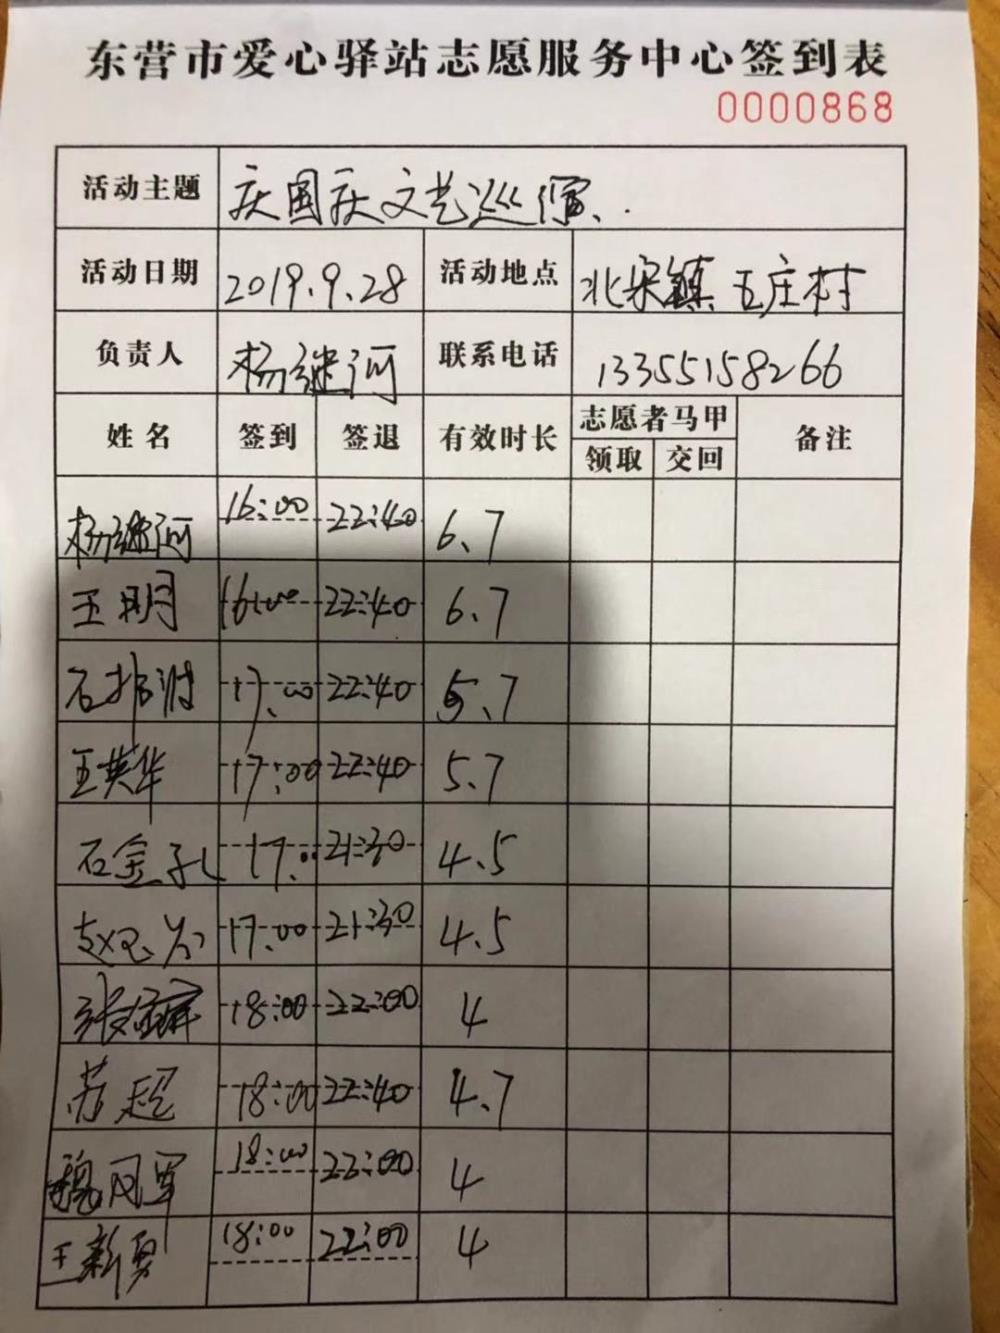 东营市爱心驿站志愿服务中心签到表
0000868
活动主题 庆国庆文艺巡演
活动日期 2019.9.28 活动地点 北宋镇 五庄村
负责人 杨继河 联系电话 13355158266
姓名 签到 签退 有效时长 志愿者马甲 备注
领取 交回
杨继河 16:00 22:40 6.7
王明 16:00 22:40 6.7
石 17:00 22:40 5.7
王英华 17:00 22:40 5.7
石金孔 17:00 21:30 4.5
赵 17:00 21:30 4.5
张 18:00 22:00 4
苏超 18:00 22:40 4.7
魏风军 18:00 22:00 4
王新勇 18:00 22:00 4